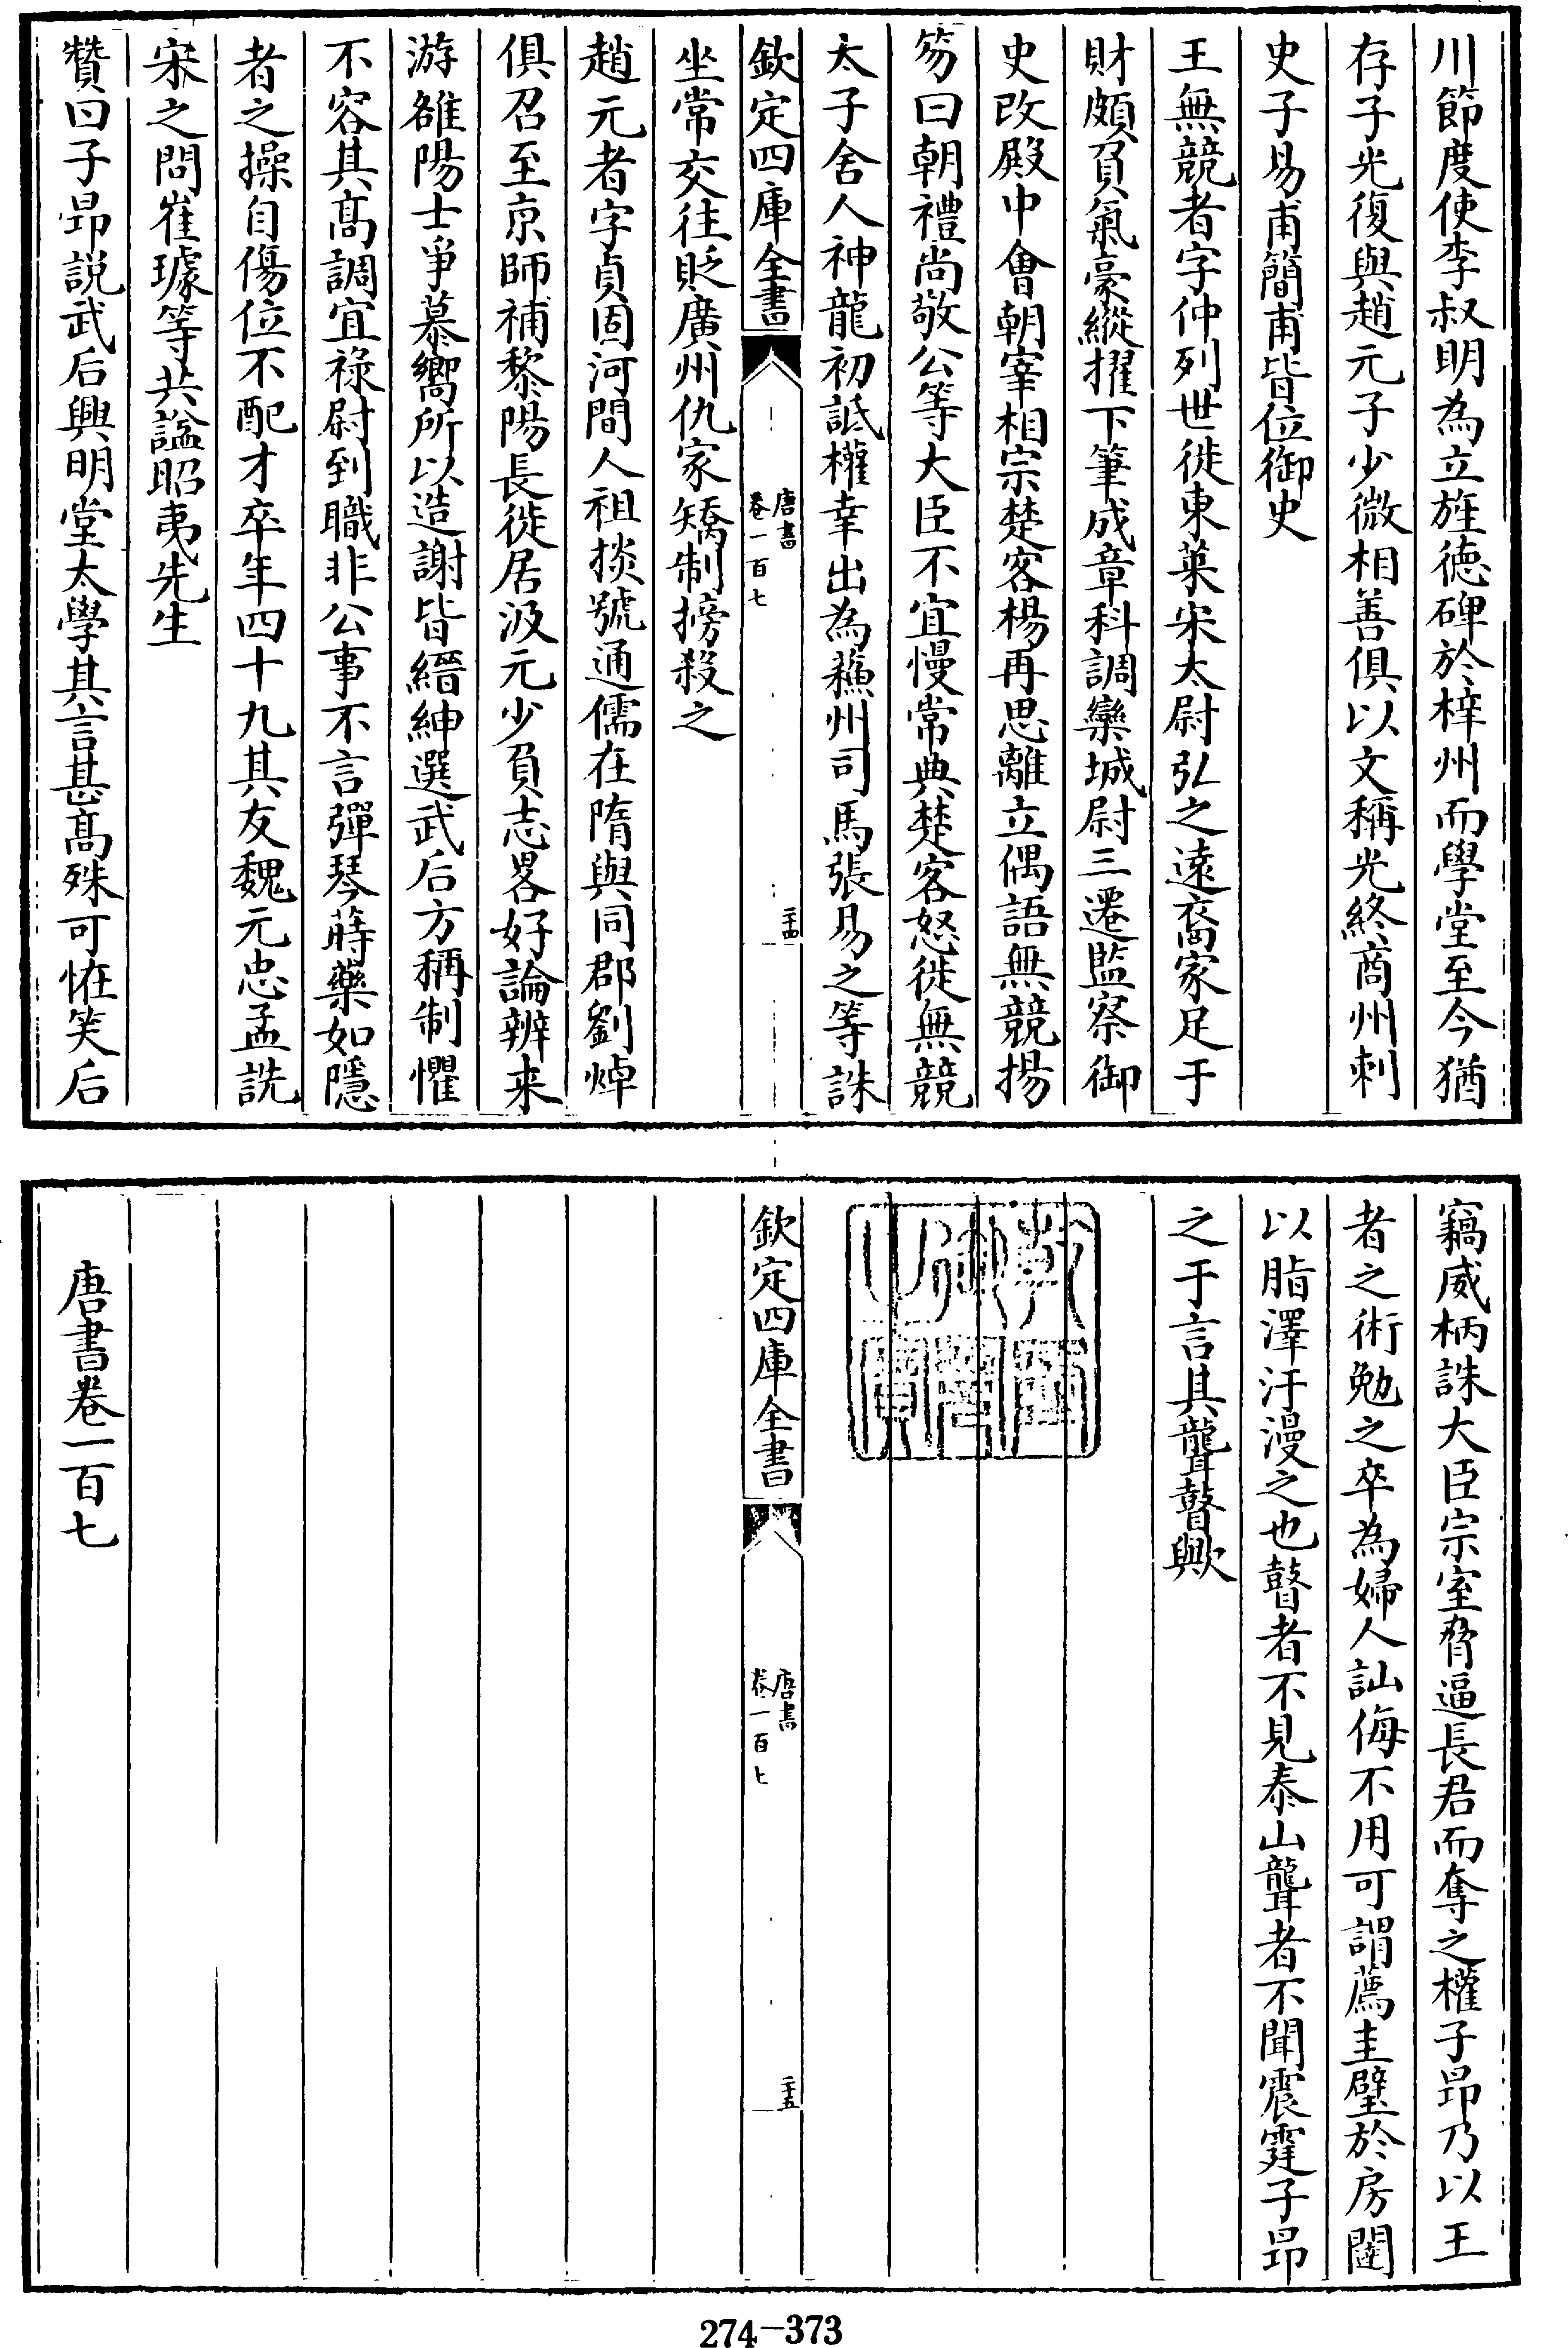 川節度使李叔明為立旌德碑於梓州而學堂至今猶
存子光復與趙元子少微相善俱以文稱光終商州刺
史子易甫簡甫皆位御史
王無競者字仲列世徙東萊宋太尉弘之遠裔家足于
財頗負氣豪縱擢下筆成章科調欒城尉三遷監察御
史改殿中會朝宰相宗楚客楊再思離立偶語無競揚
笏曰朝禮尚敬公等大臣不宜慢常典楚客怒徙無競
太子舍人神龍初詆權幸出為蘇州司馬張易之等誅
欽定四庫全書
唐書
卷一百七
二十四
坐常交往貶廣州仇家矯制搒殺之
趙元者字貞固河間人祖掞號通儒在隋與同郡劉焯
俱召至京師補黎陽長徙居汲元少負志畧好論辨来
游雒陽士爭慕嚮所以造謝皆縉紳選武后方稱制懼
不容其髙調宜祿尉到職非公事不言彈琴蒔藥如隱
者之操自傷位不配才卒年四十九其友魏元忠孟詵
宋之問崔璩等共諡昭夷先生
贊曰子昂説武后興明堂太學其言甚髙殊可恠笑后
竊威柄誅大臣宗室脅逼長君而奪之權子昂乃以王
者之術勉之卒為婦人訕侮不用可謂薦圭璧於房闥
以脂澤汙漫之也瞽者不見泰山聾者不聞震霆子昂
之于言其聾瞽歟
欽定四庫全書
唐書
卷一百七
二十五
唐書卷一百七
274-373